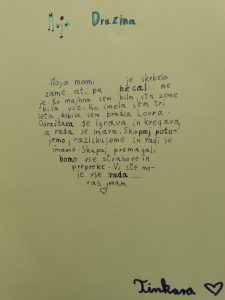 Moja Družina
Moja mami je skrbela
zame ati pa me
je. Ko majhna sem bila, sta zame
bila vse. Ko imela sem tri
leta dobila sem bratca Lovra.
se igrava in kregava,
a rada se imava. Skupaj potu-
jemo, raziskujemo in radi se
imamo. Skupaj premagali
bomo vse strahove in
prepreke. Vi ste mo-
je vse rada
vas imam.
Tinkara